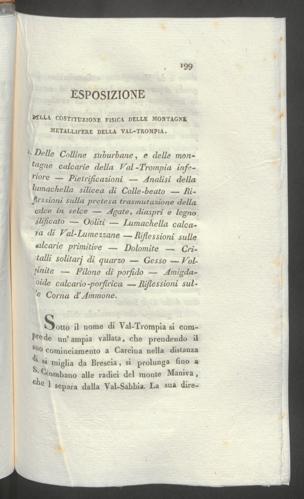 199
ESPOSIZIONE
DELLA COSTITUZIONE FISICA DELLE MONTAGNE
METALLIFERE DELLA VAL-TROMPIA.
Delle Colline suburbane, e delle mon-
tagne calcarie della Val-Trompia infe-
riore — Pietrificazioni — Analisi della
lumachella silicea di Colle-beato — Ri-
flessioni sulla pretesa trasmutazione della
calce in selce — Agate, diaspri e legno
silificato — Ooliti — Lumachella calca-
ra di Val-Lumezzane — Riflessioni sulle
calcarie primitive — Dolomite — Cri-
talli solitarj di quarzo — Gesso — Vol-
pinite — Filone di porfido — Amigda-
oide calcario-porfirica — Riflessioni sul-
le Corna d'Ammone.
Sotto il nome di Val-Trompia si com-
prende un'ampia vallata, che prendendo il
suo cominciamento a Carcina nella distanza
di si miglia da Brescia, si prolunga fino a
S. Colombano alle radici del monte Maniva,
che l separa dalla Val-Sabbia. La sua dire-